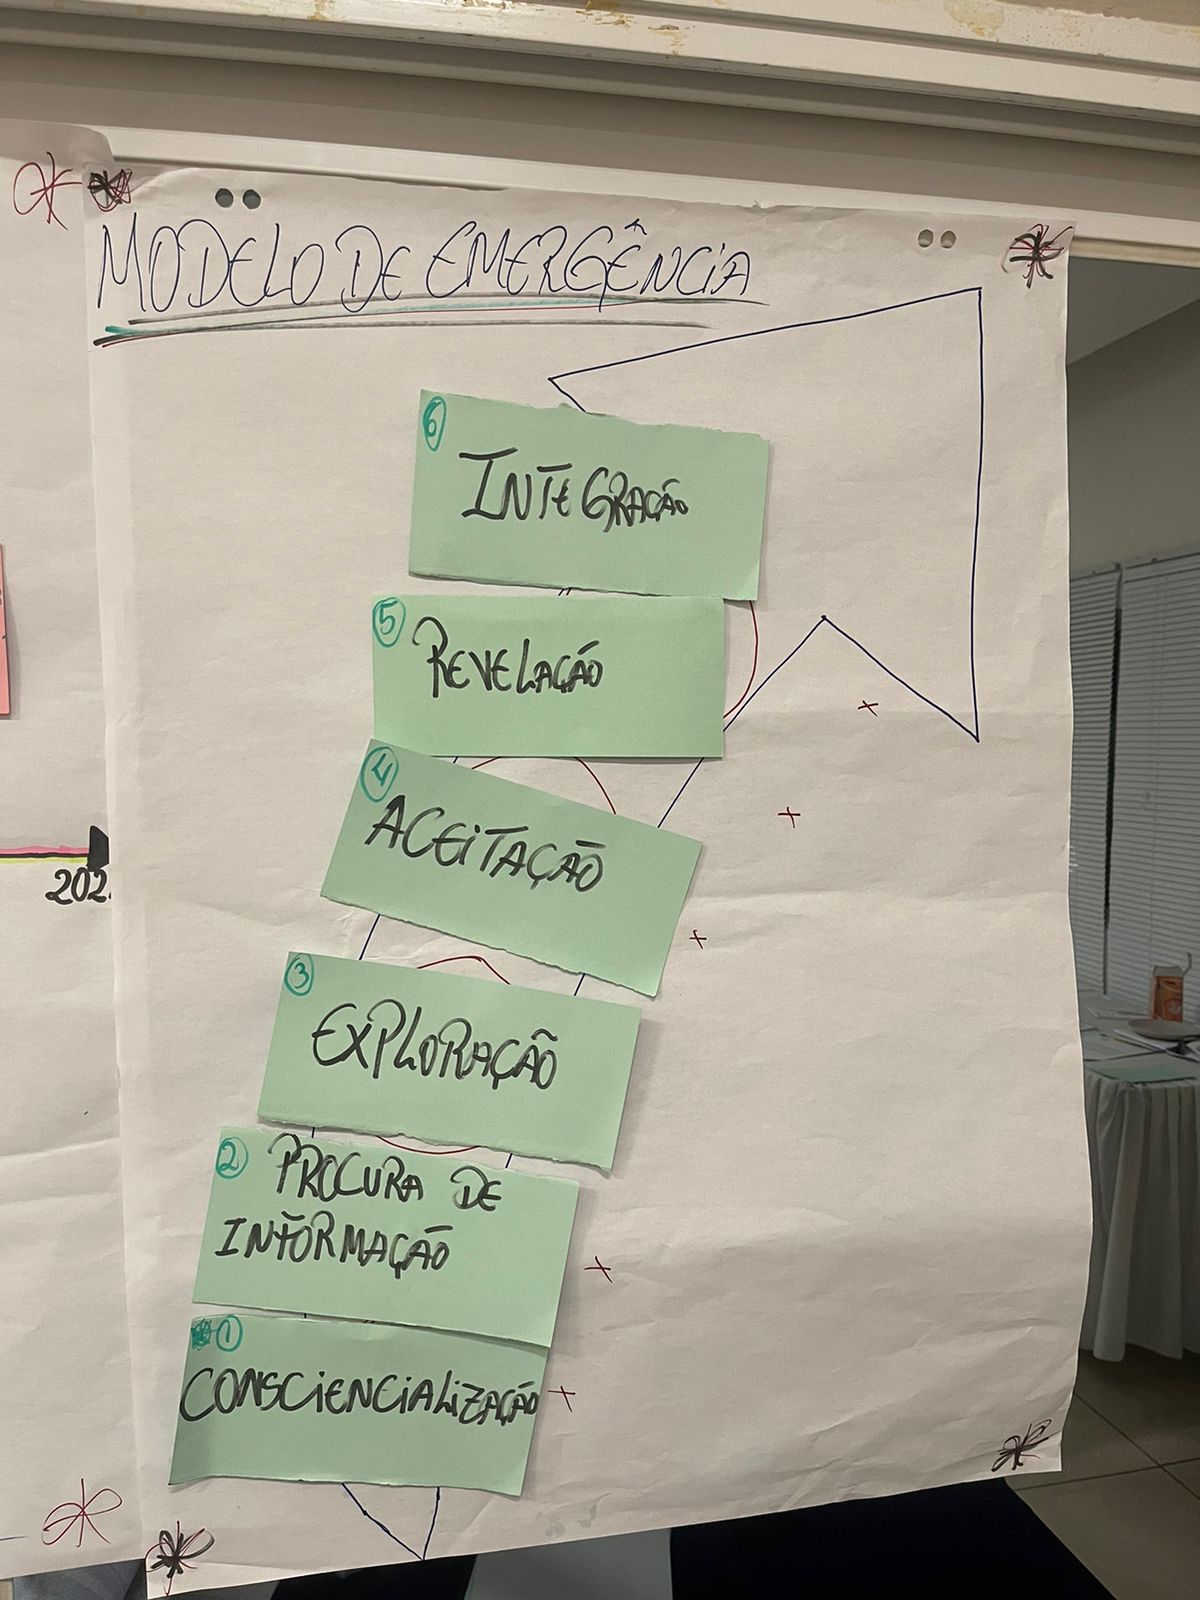 MODELO DE EMERGÊNCIA
6
INTEGRAÇÃO
5
REVELAÇÃO
4
ACEITAÇÃO
3
EXPLORAÇÃO
2 PROCURA DE
INFORMAÇÃO
1
CONSCIENCIALIZAÇÃO
202